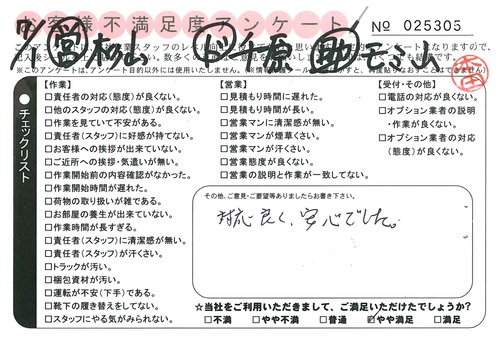 お客様不満足度アンケート
№ 025305
※このアンケートは、アンケート目的以外には使用いたしません。
チェックリスト
【作業】
□責任者の対応(態度)が良くない。
□他のスタッフの対応(態度)が良くない。
□作業を見ていて不安がある。
□責任者(スタッフ)に好感が持てない。
□お客様への挨拶が出来ていない。
□ご近所への挨拶・気遣いが無い。
□作業開始前の内容確認がなかった。
□作業開始時間が遅れた。
□荷物の取り扱いが雑である。
□お部屋の養生が出来ていない。
□作業時間が長すぎる。
□責任者(スタッフ)に清潔感が無い。
□責任者(スタッフ)が汗くさい。
□トラックが汚い。
□梱包資材が汚い。
□運転が不安(下手)である。
□靴下の履き替えをしてない。
□スタッフにやる気がみられない。
【営業】
□見積もり時間に遅れた。
□見積もり時間が長い。
□営業マンに清潔感が無い。
□営業マンが煙草くさい。
□営業マンが汗くさい。
□営業態度が良くない。
□営業の説明と作業が一致してない。
【受付・その他】
□電話の対応が良くない。
□オプション業者の説明・作業が良くない。
□オプション業者の対応(態度)が良くない。
その他、ご意見・ご要望等ありましたらお書き下さい。
対応良く、安心でした。
☆当社をご利用いただきまして、ご満足いただけたでしょうか?
□不満 □やや不満 □普通 ☑やや満足 □満足